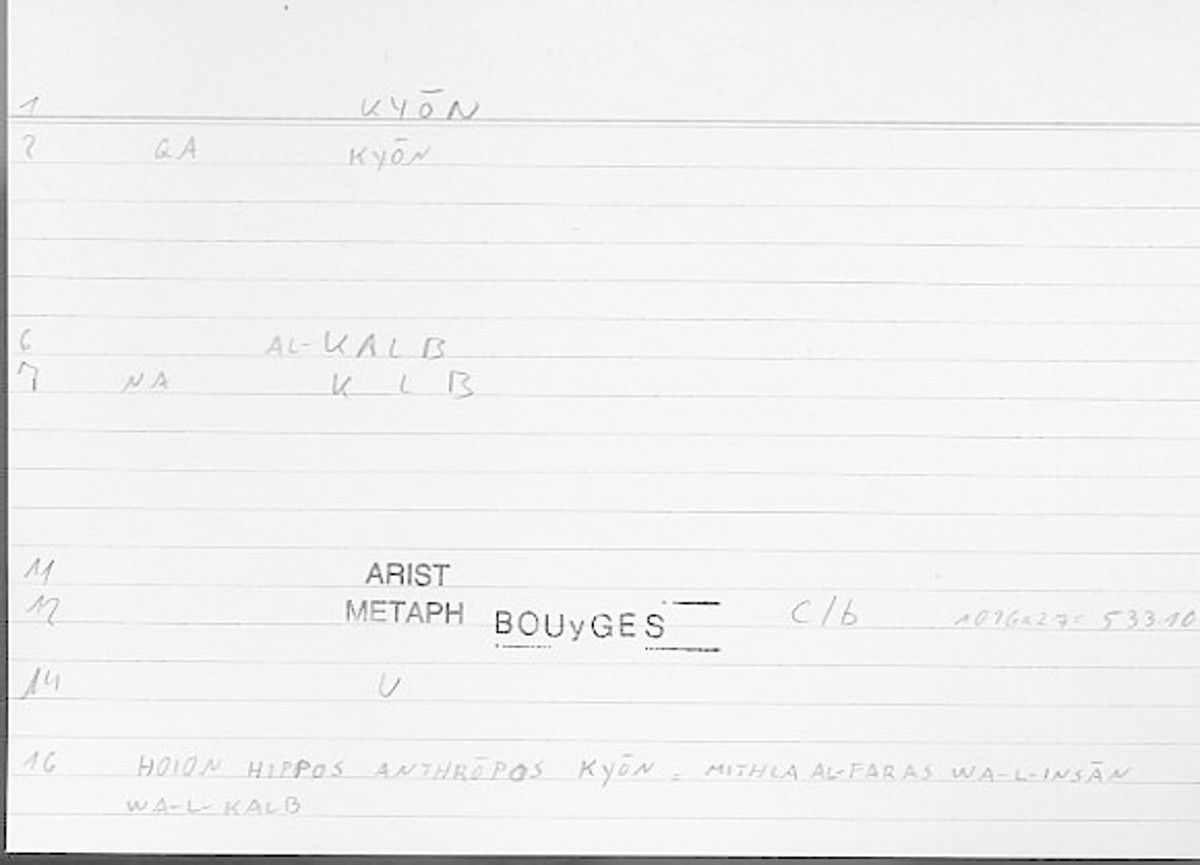 1 KYŌN
2 GA KYŌN
6 AL-KALB
7 NA K L B
11 ARIST
12 METAPH BOUyGES C/b 1016a27= 533.10
14 U
16 HOION HIPPOS ANTHRŌPOS KYŌN = MITHLA AL-FARAS WA-L-INSĀN
WA-L-KALB